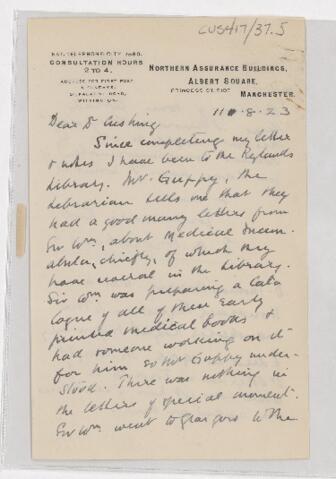 CUSH17/37.5
CONSULTATION HOURS
2 TO 4.
NORTHERN ASSURANCE BUILDINGS,
ALBERT SQUARE,
PRINCESS STREET
MANCHESTER.
11-8-23
Dear Dr Cushing
Since completing my letter
& notes I have been to the Rylands
Library. Mr. Guppy, the
Librarian tells me that they
had a good many letters from
Sir Wm, about Medical Incun-
abula, chiefly, of which they
have several in the Library.
Sir Wm was preparing a Cata
logue of all of these early
printed medical books &
had someone working on it
for him so Mr Guppy under-
stood. There was nothing in
the letters of special moment.
Sir Wm went to Glasgow to the